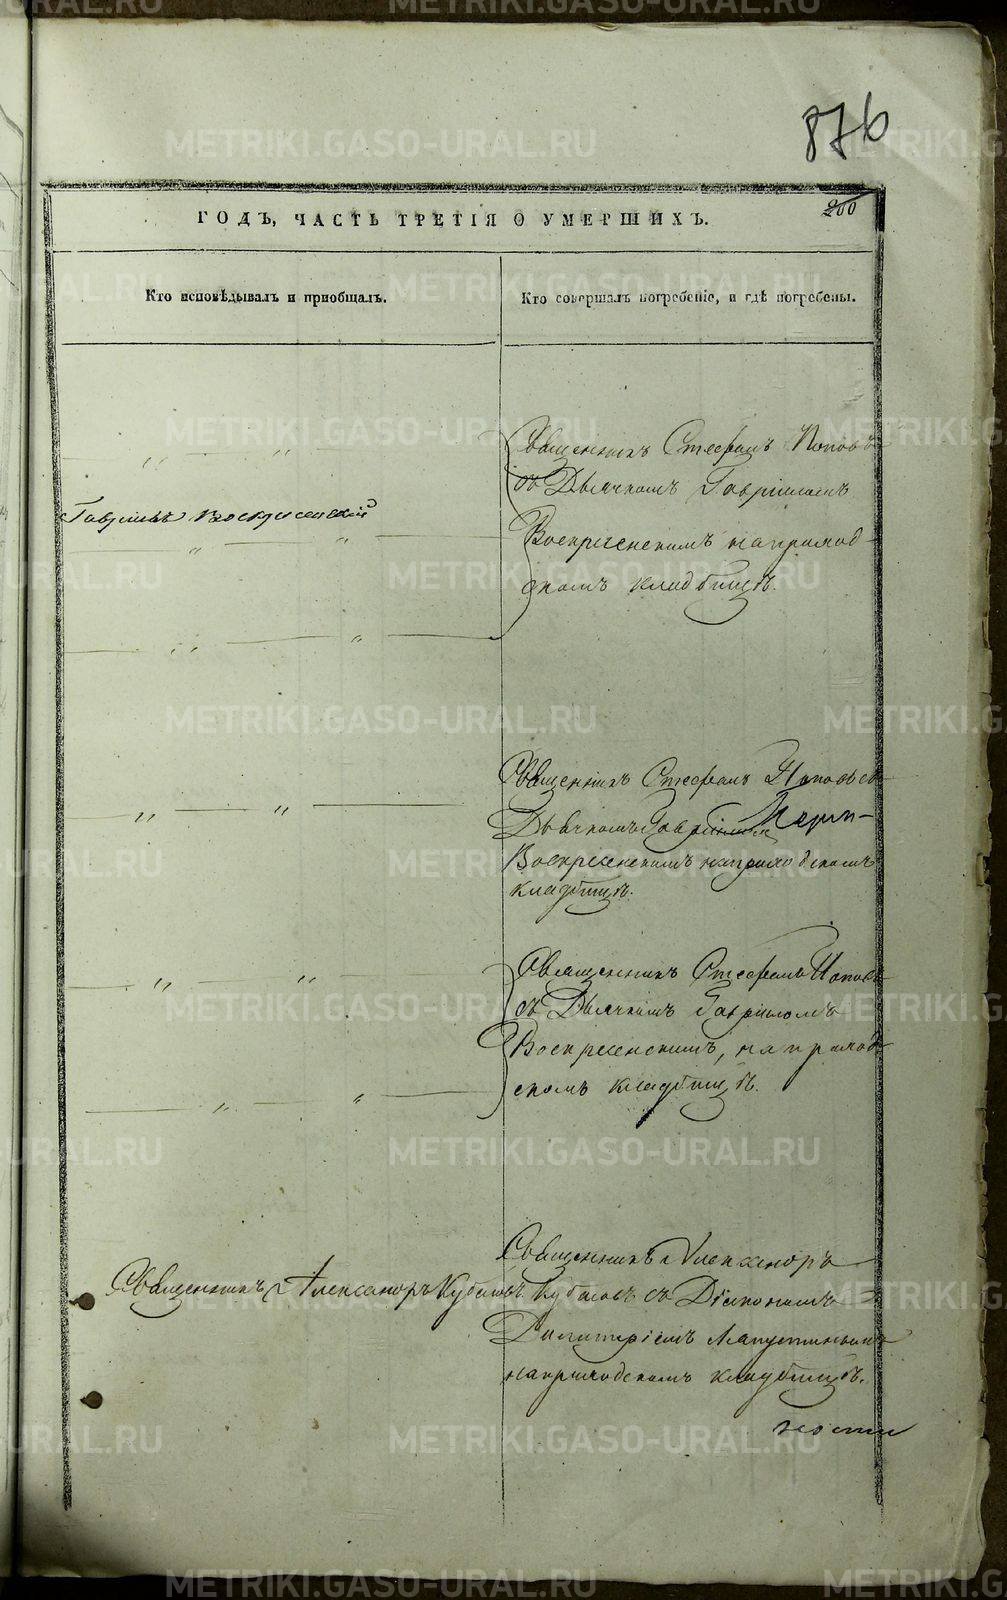 876
200
ГОДЪ, ЧАСТЬ ТРЕТІЯ О УМЕРШИХЪ.
Кто исповѣдывалъ и пріобщалъ.
Кто совершалъ погребеніе, и гдѣ погребены.
Священникъ Стефанъ Поповъ
съ Дьячкомъ Гавріиломъ
Гавріилъ Воскресенскій
Воскресенскимъ на приход-
скомъ кладбищѣ.
Священникъ Стефанъ Поповъ съ
Дьячкомъ Гавріиломъ
Воскресенскимъ на приходскомъ
кладбищѣ.
Священникъ Стефанъ Поповъ
съ Дьячкомъ Гавріиломъ
Воскресенскимъ, на приход-
скомъ кладбищѣ.
Священникъ Александръ
Священникъ Александръ Кубасовъ
Кубасовъ съ Діякономъ
Димитріемъ
на приходскомъ кладбищѣ.
METRIKI.GASO-URAL.RU